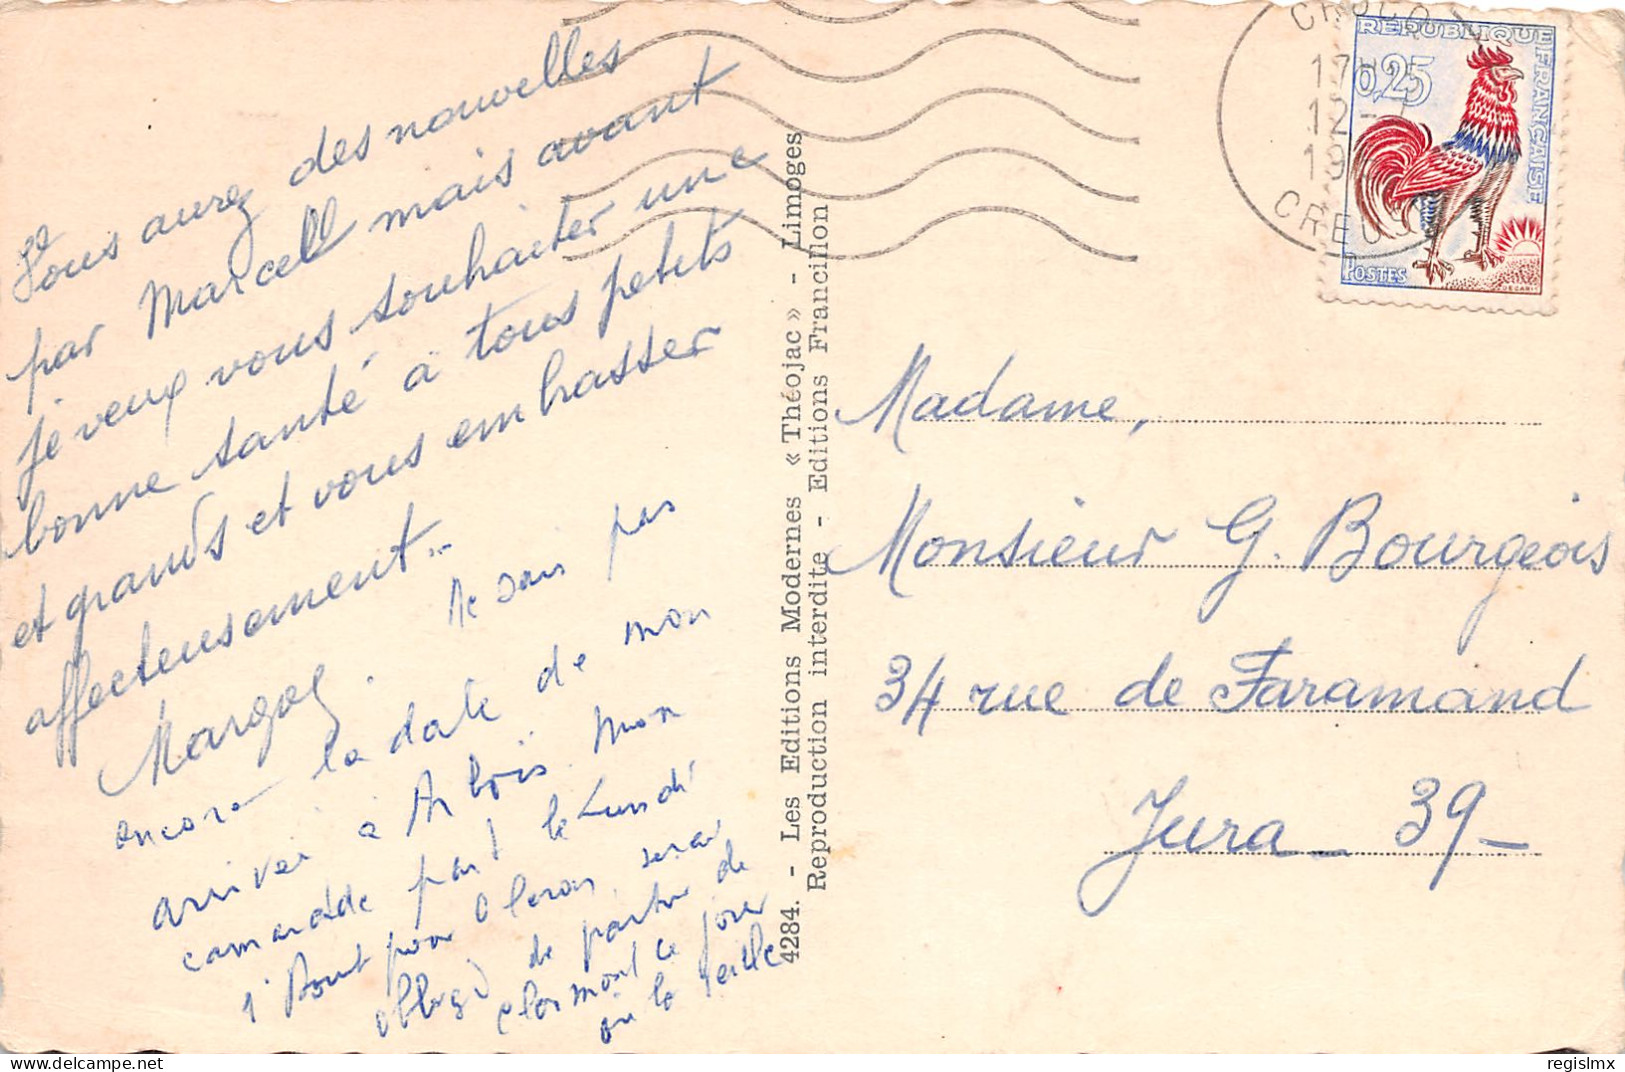 Vous aurez des nouvelles
par Marcell mais avant
je veux vous souhaiter une
bonne santé à tous petits
et grands et vous embrasser
affecteusement..
Margot.
Je sais pas
encore la date de mon
arrivée à Arbois. Mon
camarade part le Lundi
1 Aout pour Oleron, serai
obligé de partir de
clermont ce jour
ou la veille
4284. - Les Editions Modernes « Théojac » - Limoges
Reproduction interdite - Editions Francillon
CROCQ
17H
12-
19
CREUSE
REPUBLIQUE FRANÇAISE
0,25
POSTES
DECARIS
Madame,
Monsieur G. Bourgeois
34 rue de Faramand
Jura _ 39_
regislmx